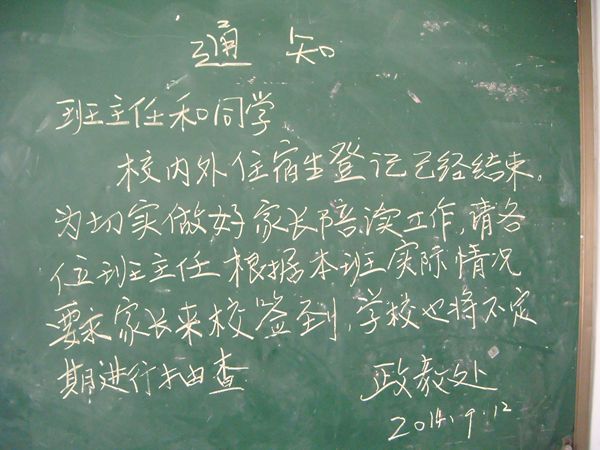 通知
班主任和同学
校内外住宿生登记已经结束,
为切实做好家长陪读工作,请各
位班主任根据本班实际情况
要求家长来校签到,学校也将不定
期进行抽查
政教处
2014.9.12